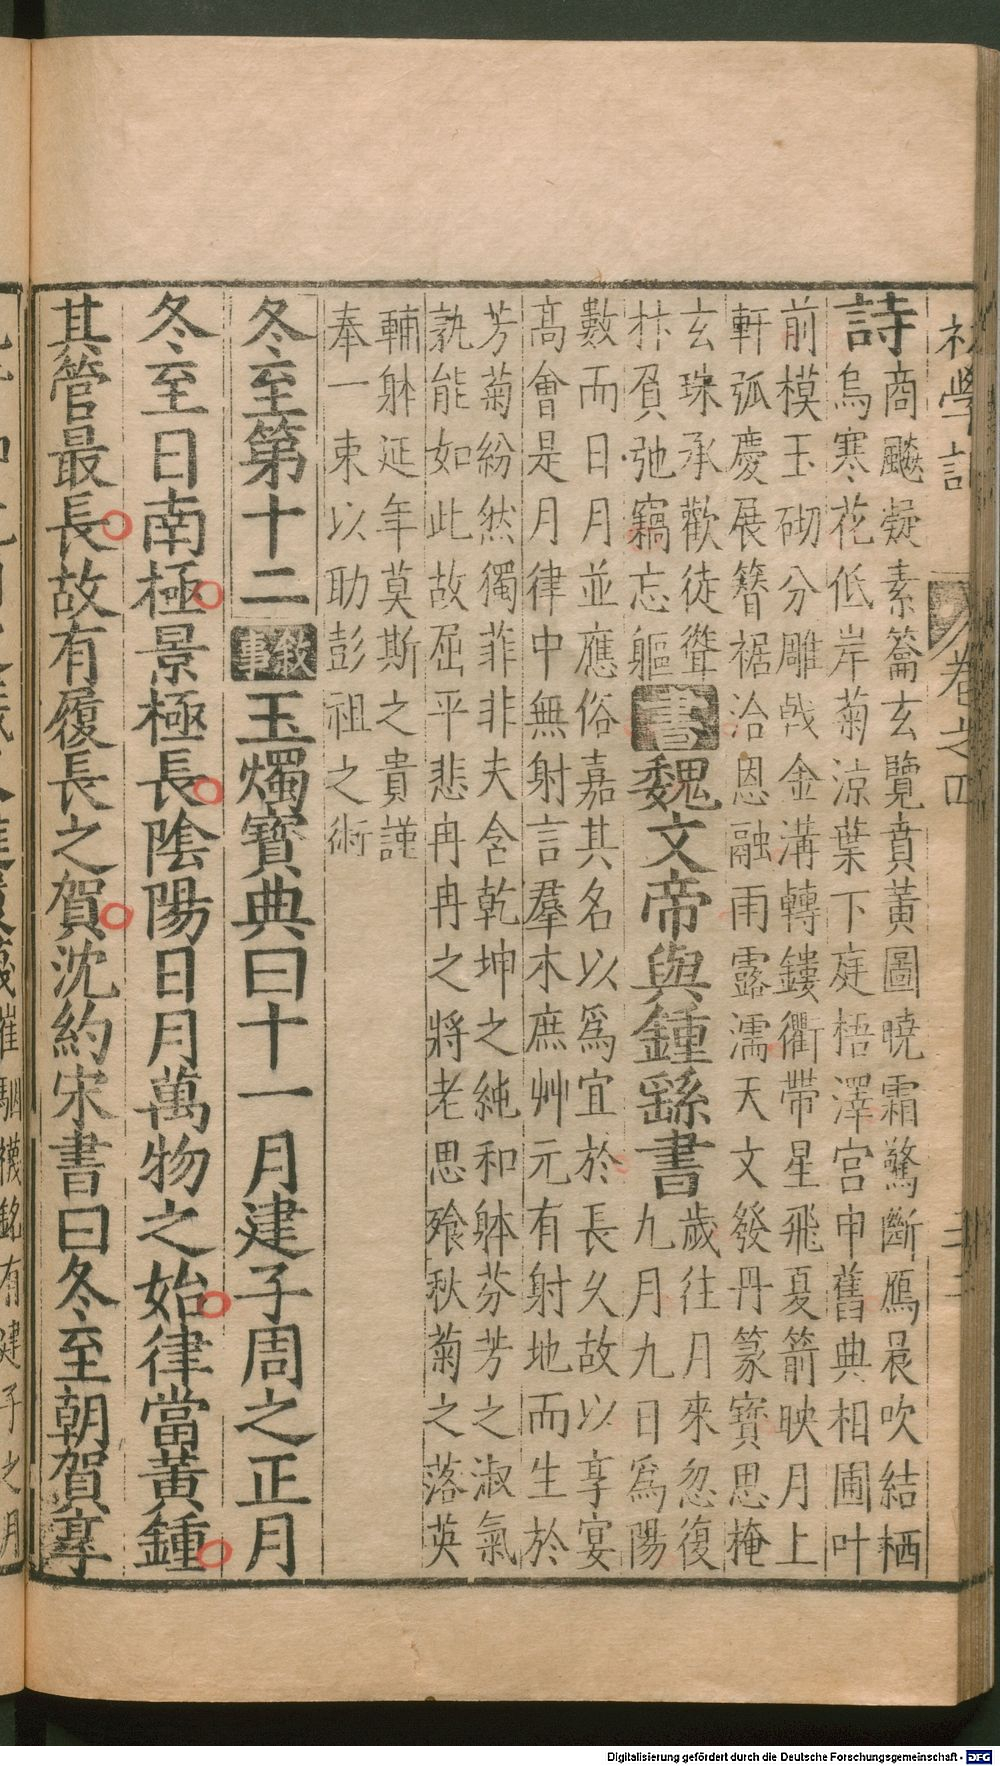 初學記 卷之四
詩 商飈凝素籥玄覽賁黃圖曉霜驚斷鴈晨吹結栖
烏寒花低岸菊涼葉下庭梧澤宮申舊典相圃叶
前模玉砌分雕戟金溝轉鏤衢帶星飛夏箭映月上
軒弧慶展簪裾洽恩融雨露濡天文發丹篆寶思掩
玄珠承歡徒聳
抃負弛竊忘軀 書 魏文帝與鍾繇書 歲往月來忽復
九月九日爲陽
數而日月並應俗嘉其名以爲宜於長久故以享宴
高會是月律中無射言羣木庶艸元有射地而生於
芳菊紛然獨菲非夫含乾坤之純和躰芬芳之淑氣
孰能如此故屈平悲冉冉之將老思飱秋菊之落英
輔躰延年莫斯之貴謹
奉一束以助彭祖之術
冬至第十二 敘事 玉燭寶典曰十一月建子周之正月
冬至日南極景極長陰陽日月萬物之始律當黃鍾
其管最長故有履長之賀沈約宋書曰冬至朝賀享
崔駰襪銘有建子之月
Digitalisierung gefördert durch die Deutsche Forschungsgemeinschaft - DFG